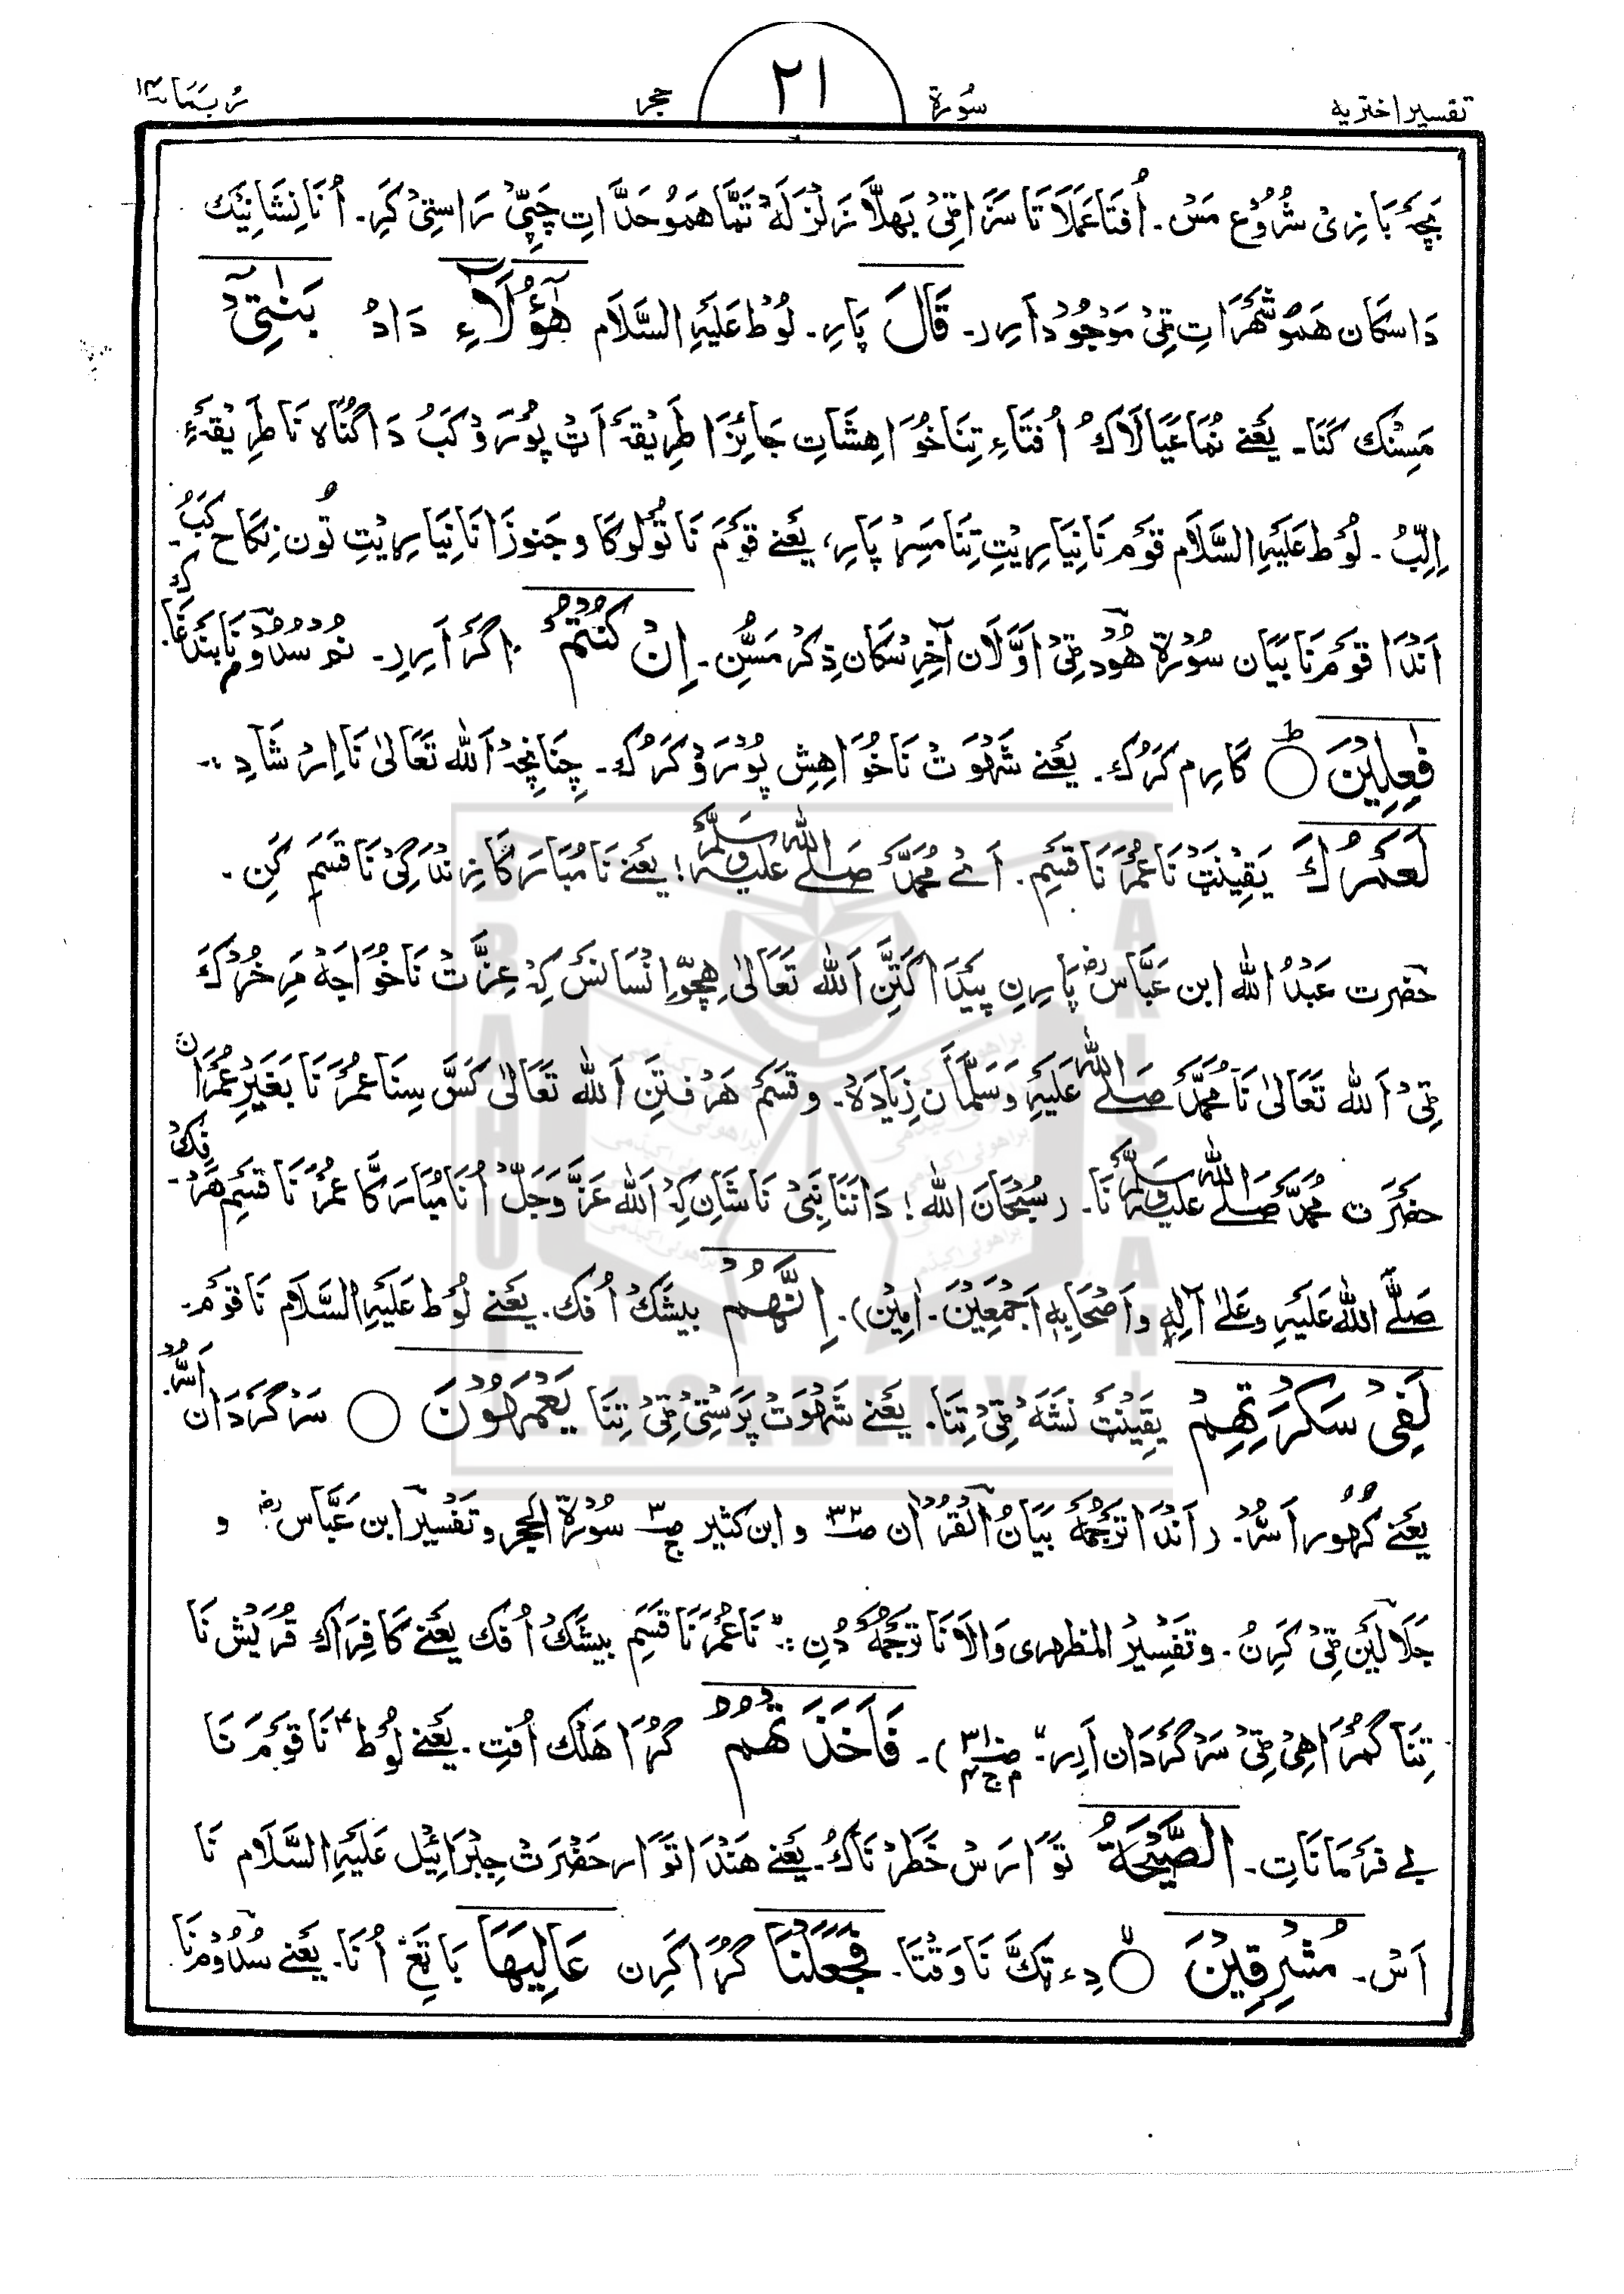 تفسیر اختریه
سُورة
۲۱
حجر
رُبَمَا ۱۴
بَچّہ بَازِیْ شُرُوْع مَسْ۔ اُفتَا عَمَلَاتَا سَزَاٹِیْ بَھلَّا زَلْزَلَہ تَمَّا ھَمُو حَدَّاتِ چَپِّیْ رَاستِیْ کَرِ۔ اُنَا نِشَانِیْک
دَاسکَان ھَمُو شَّھرَاتِ ٹِیْ مَوْجُوْد اَرِر۔ قَالَ پَارِ۔ لُوْط عَلَیْہِ السَّلَام ھٰٓؤُلَآءِ دَادُ بَنٰتِیْٓ
مَسِنْک کَنَا۔ یَعْنے نُمَا عَیَالَاکُ اُفتَاءِ تِنَا خُوَاھِشَاتِ جَائِزَا طَرِیْقَہ اَٹْ پُوْرَوْ کَبُ دَا گُنَاہ نَا طَرِیْقَہءِ
اِلِّبُ۔ لُوْط عَلَیْہِ السَّلَام قَوْم نَا نِیَارِیْتِ تِنَا مَسِرْ پَارِ، یَعْنے قَوْم نَا تُولُوکَا وَ جَنوزَانَا نِیَارِیْتِ تُون نِکَاح کَبُ۔
اَنْدَا قَوْم نَا بَیَان سُوْرَۃ ھُوْد ٹِیْ اَوَّلَان آخِرِسْکَان ذِکرْ مَسُّنِ۔ اِنْ کُنْتُمْ اگَرْ اَرِرِ۔ نُم سُدُوْم نَا بَندَغَاک
فٰعِلِیْنَ ۝ ط کَارِم کَرُک۔ یَعْنے شَہْوَتْ نَا خُوَاھِشِ پُوْرَوْ کَرُک۔ چِنَانچِہْ اَللّٰہ تَعَالیٰ نَا اِرْشَادِ :۔
لَعَمْرُکَ یَقِیْنَتْ نَا عُمْرَ نَا قَسَمِ۔ اَےْ مُحَمَّدْ صَلَّے اللّٰہُ عَلَیْہِ وَسَلَّمْ! یَعْنے نَا مُبَارَکَّا زِنْدَگِیْ نَا قَسَمَ کَنِ۔
حضرت عَبْدُ اللّٰہ ابن عَبَّاس رض پَارِنِ پَیْدَا کَتَّنِ اَللّٰہ تَعَالیٰ ھِچّوْ اِنْسَانَسْ کِہْ عِزَّتْ نَا خُوَاجَہْ مَرِ خُرْکَ
ٹِیْ اَللّٰہ تَعَالیٰ نَا مُحَمَّدْ صَلَّے اللّٰہُ عَلَیْہِ وَسَلَّمَان زِیَادَہْ۔ وَ قَسَمْ ھَرْفتَنِ اَللّٰہ تَعَالیٰ کَسَّ سِنَا عُمْرَ نَا بَغَیْرِ عُمْرَان
حضْرَت مُحَمَّدْ صَلَّے اللّٰہُ عَلَیْہِ وَسَلَّمْ نَا۔ (سُبْحَانَ اللّٰہ! دَانَنَا نَبِیْ نَا شَانِ کِہْ اَللّٰہ عَزَّ وَجَلَّ اُنَا مُبَارَکَّا عُمْرُ نَا قَسَمِ ھَرْفِکْ۔
صَلَّے اللّٰہُ عَلَیْہِ وَعَلٰی آلِہٖ وَاَصْحَابِہٖ اَجْمَعِیْنَ۔ اٰمِیْن)۔ اِنَّھُمْ بیشَکْ اُفک۔ یَعْنے لُوْط عَلَیْہِ السَّلَام نَا قَوْم۔
لَفِیْ سَکْرَتِھِمْ یَقِیْنَتْ نَشَہْ ٹِیْ تِنَا۔ یَعْنے شَہْوَتْ پَرَسْتِیْ ٹِیْ تِنَا یَعْمَھُوْنَ ۝ سَرْگَرْدَان اَسُّرْ
یَعْنے کُھور اَسُّرْ۔ (اَنْدَا تَرْجَمَہ بَیَانُ الْقُرْآن ص ۳۲ و ابن کثیر ج ص ۳ سُوْرَۃُ الْحِجر وَ تَفْسِیرْ ابن عَبَّاس رض وَ
جَلَالَیْن ٹِیْ کَرِنُ۔ وَ تَفْسِیرُ المظھری وَالَانَا تَرْجَمَہ دُنِ :۔" نَا عُمْرَ نَا قَسَمِ بیشَکْ اُفک یَعْنے کَافِرَاک قُرَیْش نَا
تِنَا گُمْرَاھِیْ ٹِیْ سَرْگَرْدَان اَرِر۔" ص ۳۱۰ م ج ۴)۔ فَاَخَذَتْھُمْ گُرَا ھَلْک اُفتِ۔ یَعْنے لُوْط ۴ نَا قَوْم نَا
بے فَرْمَانَاتِ۔ الصَّیْحَۃُ تَوَارَسْ خَطَرْنَاکُ۔ یَعْنے ھَنْدَا تَوَار حَضْرَتْ جِبْرَائِیْل عَلَیْہِ السَّلَام نَا
اَسْ۔ مُشْرِقِیْنَ ۝ دِءِ تِکَّ نَا وَقْتَا۔ فَجَعَلْنَا گُرَا کَرِن عَالِیَھَا بَا تَغْ اُنَا۔ یَعْنے سُدُوْم نَا
BRAHUI
ACADEMY
PAKISTAN